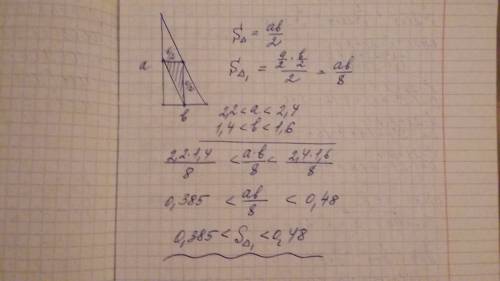 a
b/2
a/2
b
S△ = ab/2
S△₁ = (a/2 · b/2)/2 = ab/8
2,2 < a < 2,4
1,4 < b < 1,6
2,2·1,4/8 < a·b/8 < 2,4·1,6/8
0,385 < ab/8 < 0,48
0,385 < S△₁ < 0,48